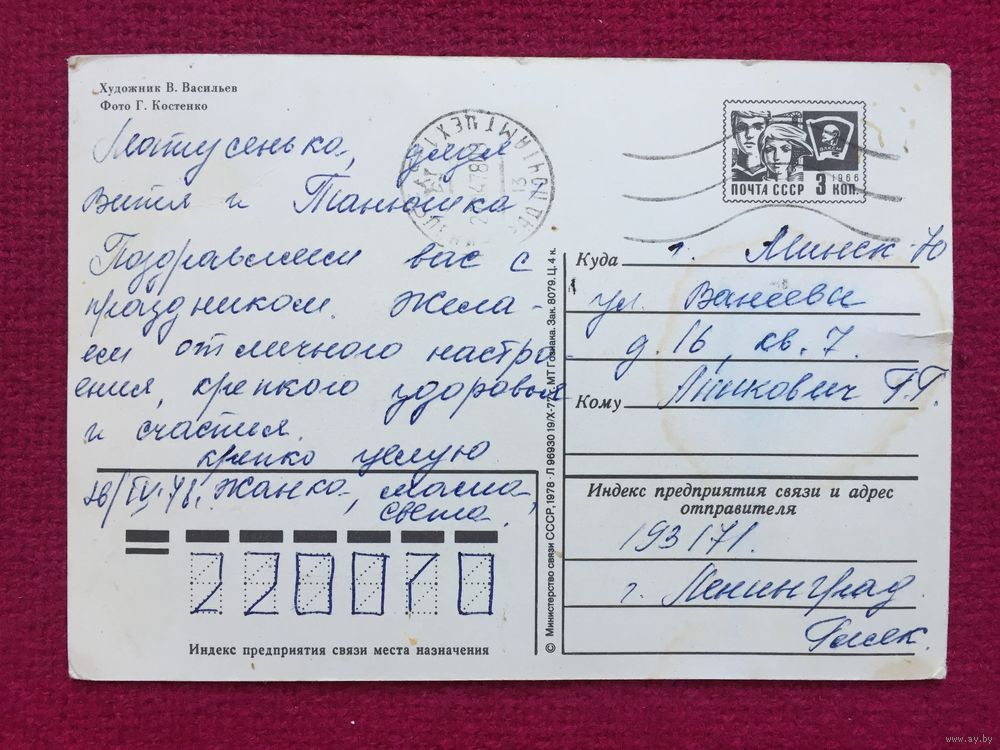 Художник В. Васильев
Фото Г. Костенко
Матусенька,
Витя и Танюшка
Поздравляем вас с
праздником. Жела-
ем отличного настро-
ения, крепкого здоровья
и счастья.
крепко целую
26/IV-78. Жанка, мама,
света.
ПОЧТА СССР 3 КОП.
1966
ВЛКСМ
Куда г. Минск-70
ул. Ванеева
д. 16, кв. 7.
Кому Г.Г.
Индекс предприятия связи и адрес
отправителя
193171.
г. Ленинград
220070
Индекс предприятия связи места назначения
© Министерство связи СССР, 1978 · Л 96930 19/X-77 г. МТ Гознака. Зак. 8079. Ц. 4 к.
www.ay.by